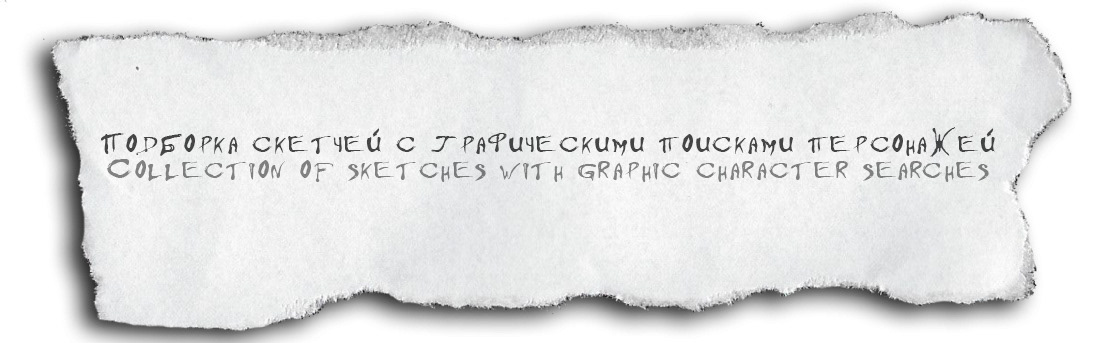 Подборка скетчей с графическими поисками персонажей
Collection of sketches with graphic character searches